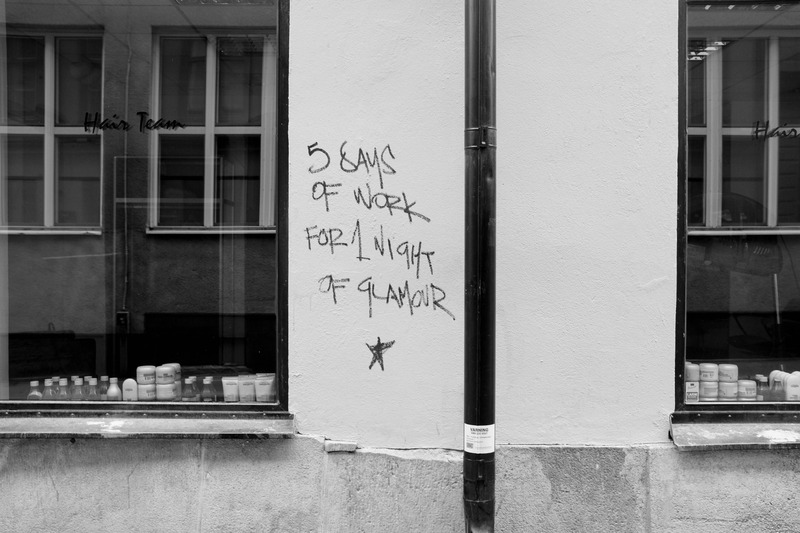 Hair Team
5 DAYS
OF WORK
FOR 1 NIGHT
OF GLAMOUR
WARNING
Hair